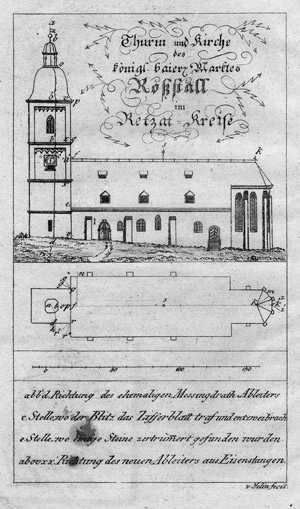 Thurm und Kirche
des
königl. baier. Marktes
Roßstall
im
Retzat-Kreise
abb'd. Richtung des ehemaligen Messingdrath Ableiters
c Stelle, wo der Blitz das Zifferblatt traf und entzweibrach
e Stelle, wo einige Steine zertrümert gefunden wurden.
abovxx. Richtung des neuen Ableiters aus Eisenstangen.
v. Yelin fecit